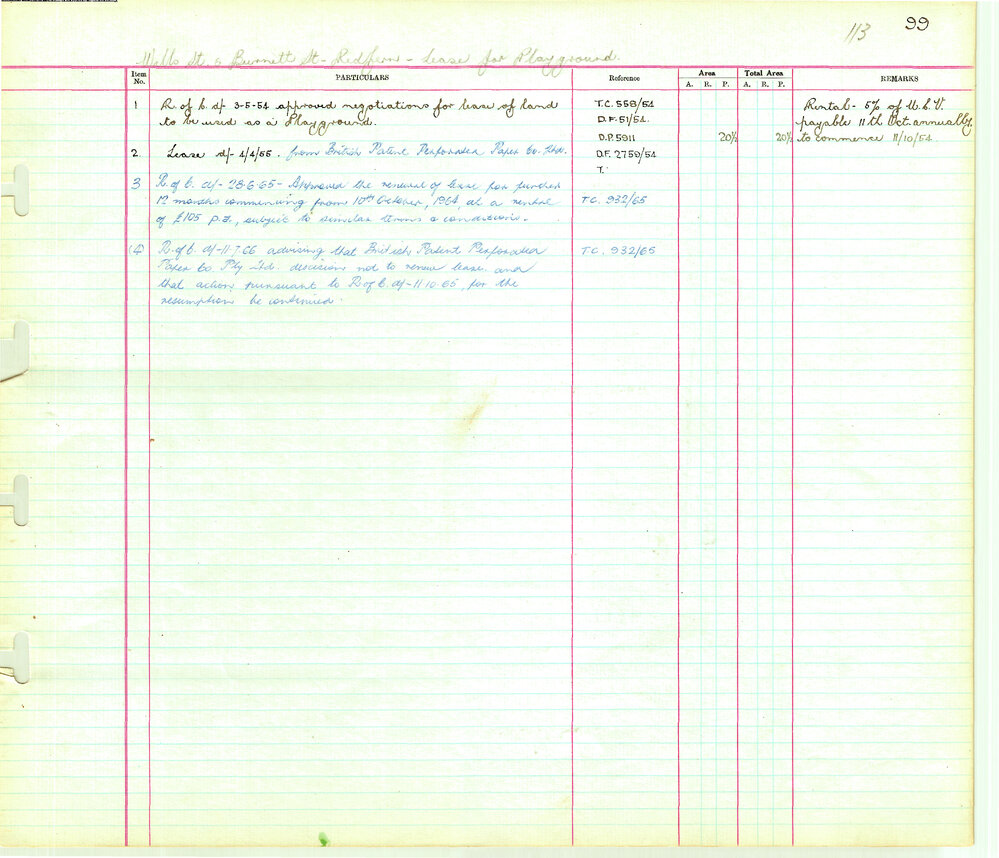 113 99
Wells St. & Burnett St - Redfern - Lease for Playground
Item No. PARTICULARS Reference Area Total Area REMARKS
A. R. P. A. R. P.
1 R. of C. d/- 3-5-54 approved negotiations for lease of land T.C. 559/54 Rental - 5% of U.C.V.
to be used as a Playground. D.F. 51/54. payable 11th Oct. annually
D.P. 5911 20½ 20½ to commence 11/10/54.
2. Lease d/- 4/4/55. from British Patent Perforated Paper Co. Ltd. D.F. 2759/54
T.
3 R. of C. d/- 28-6-65 - Approved the renewal of lease for further
12 months commencing from 10th October, 1964, at a rental T.C. 932/65
of £105 p.a., subject to similar terms & conditions.
(4) R. of C. d/- 11-7-66 advising that British Patent Perforated T.C. 932/65
Paper Co. Pty Ltd. decision not to renew lease and
that action pursuant to R of C. d/- 11-10-65, for the
resumption be continued.